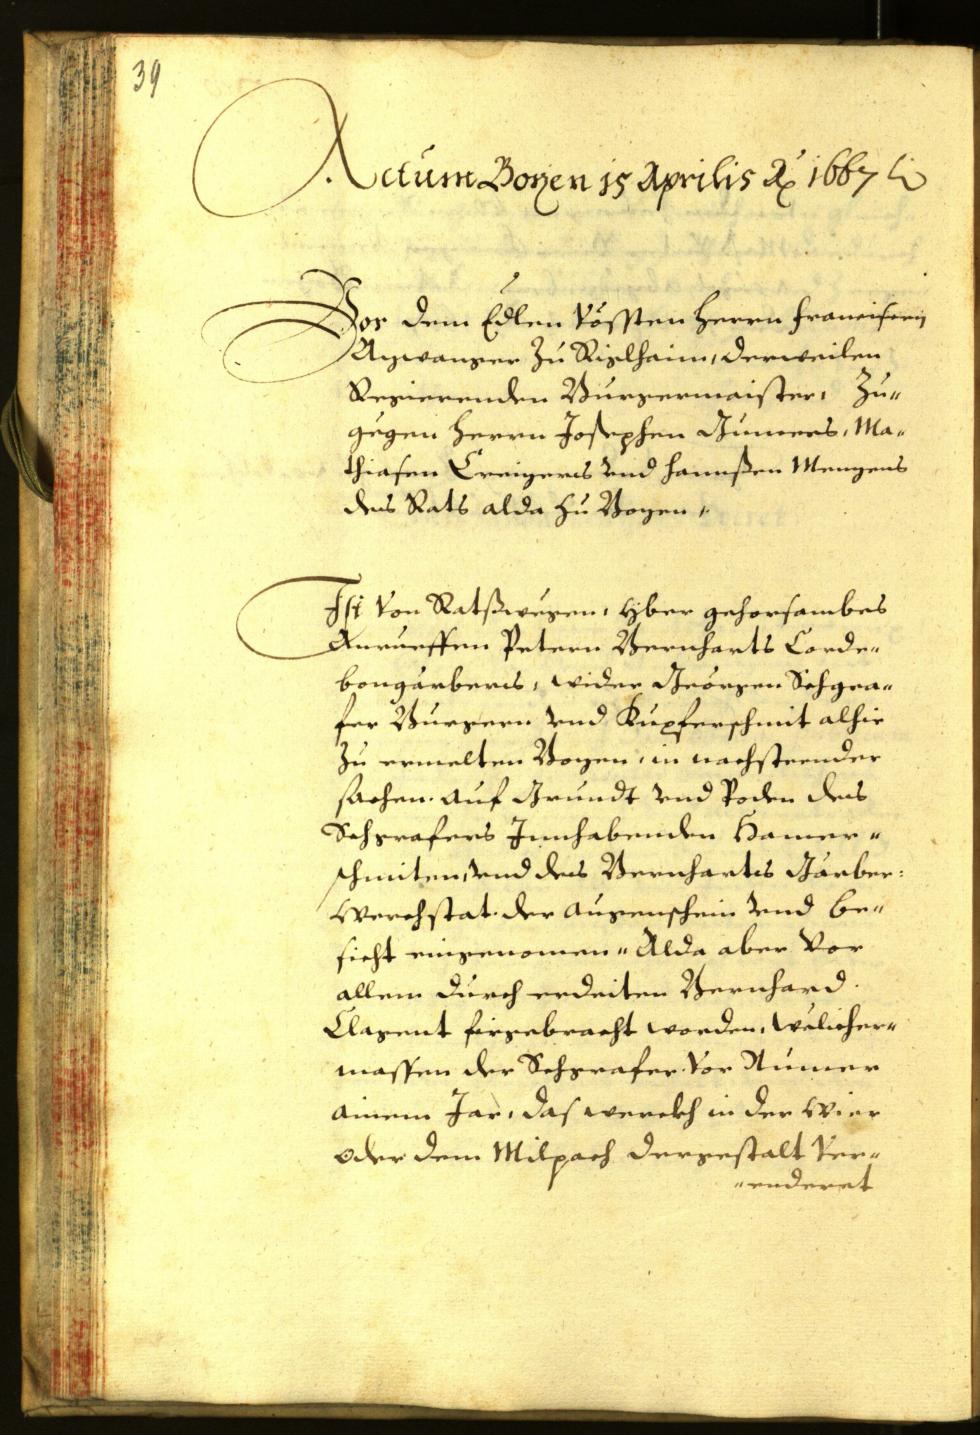 39
Actum Bozen 15 Aprilis Aº 1667
Vor dem Edlen Vössten Herrn Francisen
Azwanger zu Rizlhaim, derweilen
Regierenden Burgermaister, Zu„
gegen Herrn Josephen Gumers, Ma„
thiasen Creizers vnd Hannßen Menzens
des Rats alda zu Bozen„
Ist von Ratßwegen, yber gehorsambes
Anrueffen Petern Bernharts Corde„
bongärbers, wider Geörgen Schgra„
fer Burgern vnd Kupferschmit alhie
zu ermelten Bozen, in nachsteender
sachen. auf Grundt vnd Poden des
Schgrafers Innhabenden Hamer„
schmiten, vnd des Bernharts Gärber:
Werchstat. der augenschein vnd be„
sicht eingenomen„ Alda aber vor
allem durch erdeiten Bernhard.
Clagent firgebracht worden, welicher„
massen der Schgrafer. vor Numer
ainem Jar, das werckh in der Wier
oder dem Milpach dergestalt ver„
„enderet